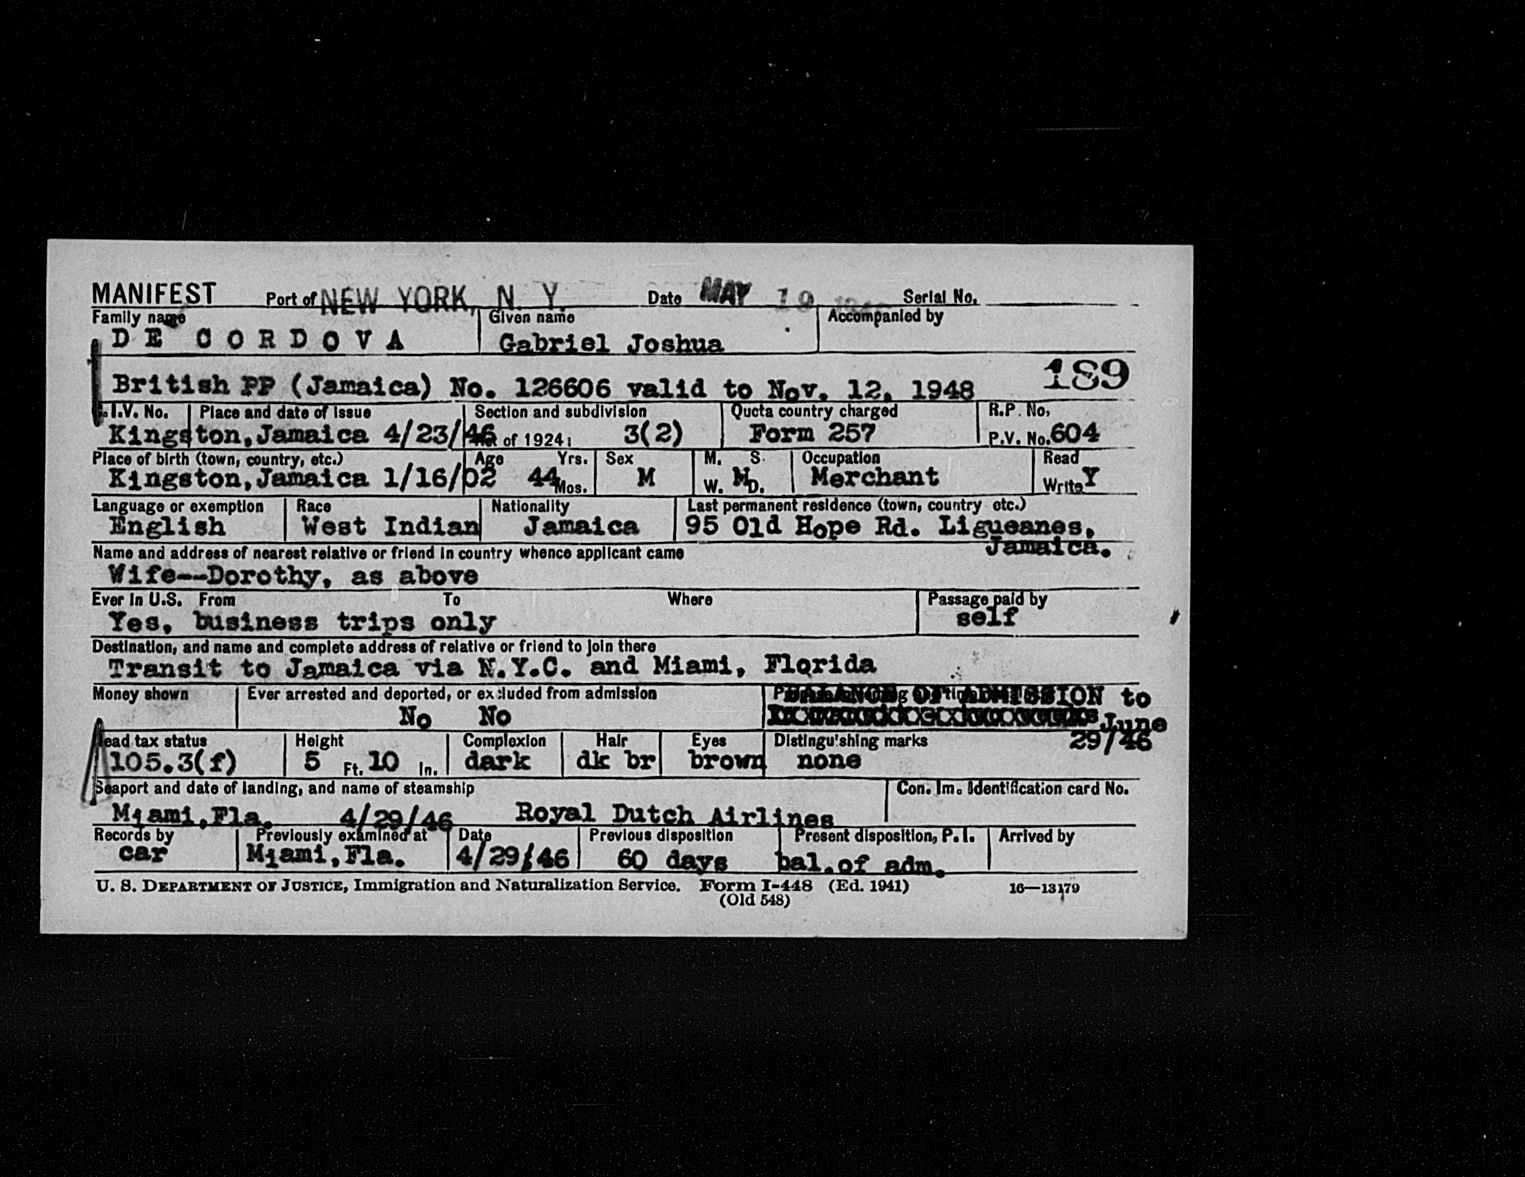 MANIFEST Port of NEW YORK, N. Y. Date MAY 10 Serial No.
Family name Given name Accompanied by
DE CORDOVA Gabriel Joshua
British PP (Jamaica) No. 126606 valid to Nov. 12, 1948 189
I.V. No. Place and date of issue Section and subdivision Quota country charged R.P. No.
Kingston, Jamaica 4/23/46 of 1924: 3(2) Form 257 P.V. No. 604
Place of birth (town, country, etc.) Age Yrs. Sex M. S. Occupation Read
Kingston, Jamaica 1/16/02 44 Mos. M W. M D. Merchant Write Y
Language or exemption Race Nationality Last permanent residence (town, country etc.)
English West Indian Jamaica 95 Old Hope Rd. Ligueanes,
Jamaica.
Name and address of nearest relative or friend in country whence applicant came
Wife--Dorothy, as above
Ever in U.S. From To Where Passage paid by
Yes, business trips only self
Destination, and name and complete address of relative or friend to join there
Transit to Jamaica via N.Y.C. and Miami, Florida
Money shown Ever arrested and deported, or excluded from admission BALANCE OF ADMISSION to
No No June
29/46
Head tax status Height Complexion Hair Eyes Distinguishing marks
105.3(f) 5 Ft. 10 In. dark dk br brown none
Seaport and date of landing, and name of steamship Con. Im. Identification card No.
Miami, Fla. 4/29/46 Royal Dutch Airlines
Records by Previously examined at Date Previous disposition Present disposition, P. I. Arrived by
car Miami, Fla. 4/29/46 60 days bal. of adm.
U. S. DEPARTMENT OF JUSTICE, Immigration and Naturalization Service. Form I-448 (Ed. 1941) 16—13179
(Old 548)